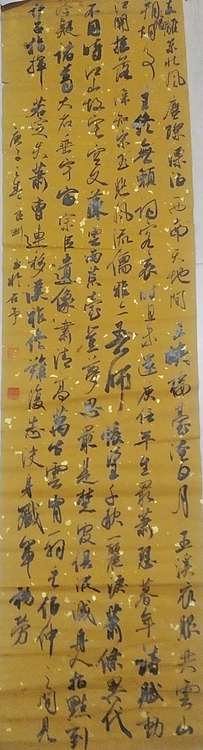 支離東北風塵際漂泊西南天地間三峽樓臺淹日月五溪衣服共雲山
羯胡事主終無賴詞客哀時且未還庾信平生最蕭瑟暮年詩賦動
江關搖落深知宋玉悲風流儒雅亦吾師悵望千秋一灑淚蕭條異代
不同時江山故宅空文藻雲雨荒臺豈夢思最是楚宮俱泯滅舟人指點到
今疑諸葛大名垂宇宙宗臣遺像肅清高萬古雲霄一羽毛伯仲之間見
伊呂指揮若定失蕭曹運移漢祚終難復志決身殲軍務勞
庚子之